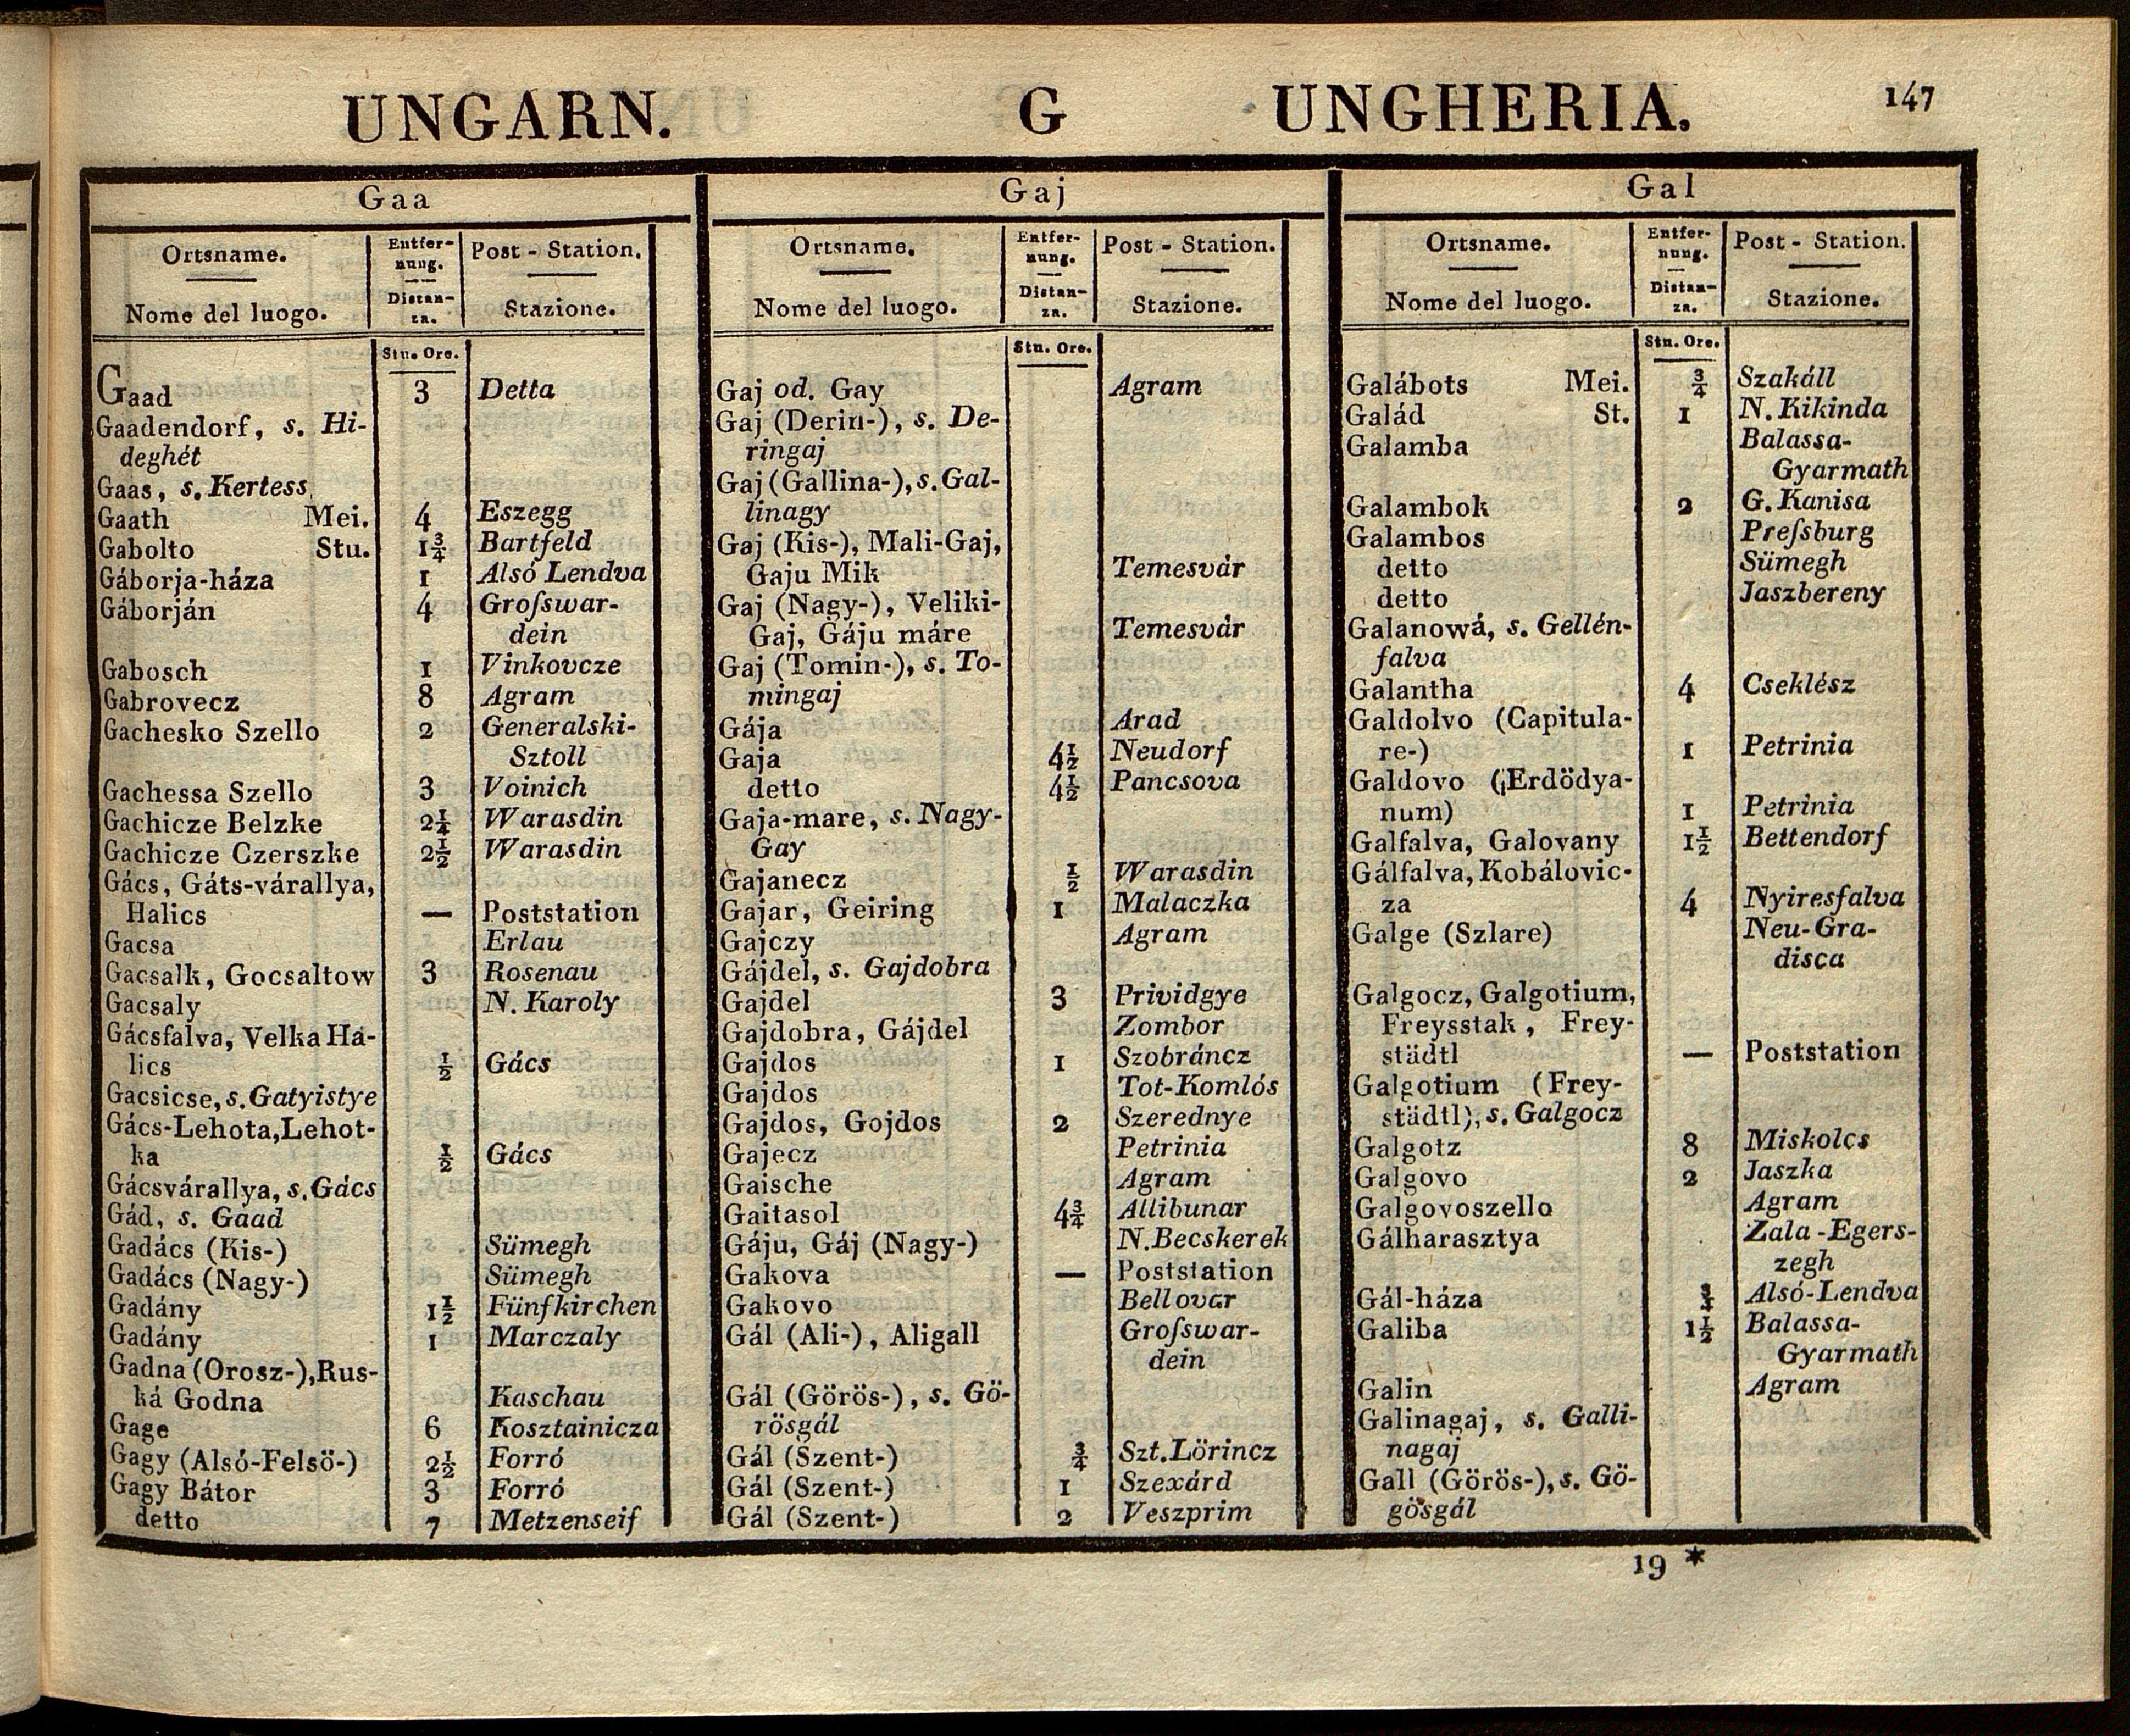 UNGARN. G UNGHERIA. 147
Gaa
Ortsname. Entfer- Post - Station.
nung.
Nome del luogo. Distan- Stazione.
za.
Stu. Ore.
Gaad 3 Detta
Gaadendorf, s. Hi-
deghét
Gaas, s. Kertess
Gaath Mei. 4 Eszegg
Gabolto Stu. 1¾ Bartfeld
Gáborja-háza 1 Alsó Lendva
Gáborján 4 Groſswar-
dein
Gabosch 1 Vinkovcze
Gabrovecz 8 Agram
Gachesko Szello 2 Generalski-
Sztoll
Gachessa Szello 3 Voinich
Gachicze Belzke 2¼ Warasdin
Gachicze Czerszke 2½ Warasdin
Gács, Gáts-várallya,
Halics — Poststation
Gacsa Erlau
Gacsalk, Gocsaltow 3 Rosenau
Gacsaly N. Karoly
Gácsfalva, Velka Ha-
lics ½ Gács
Gacsicse, s. Gatyistye
Gács-Lehota, Lehot-
ka ½ Gács
Gácsvárallya, s. Gács
Gád, s. Gaad
Gadács (Kis-) Sümegh
Gadács (Nagy-) Sümegh
Gadány 1½ Fünfkirchen
Gadány 1 Marczaly
Gadna (Orosz-), Rus-
ká Godna Kaschau
Gage 6 Kosztainicza
Gagy (Alsó-Felsö-) 2½ Forró
Gagy Bátor 3 Forró
detto 7 Metzenseif
Gaj
Ortsname. Entfer- Post - Station.
nung.
Nome del luogo. Distan- Stazione.
za.
Stu. Ore.
Gaj od. Gay Agram
Gaj (Derin-), s. De-
ringaj
Gaj (Gallina-), s. Gal-
linagy
Gaj (Kis-), Mali-Gaj,
Gaju Mik Temesvár
Gaj (Nagy-), Veliki-
Gaj, Gáju máre Temesvár
Gaj (Tomin-), s. To-
mingaj
Gája Arad
Gaja 4½ Neudorf
detto 4½ Pancsova
Gaja-mare, s. Nagy-
Gay
Gajanecz ½ Warasdin
Gajar, Geiring 1 Malaczka
Gajczy Agram
Gájdel, s. Gajdobra
Gajdel 3 Prividgye
Gajdobra, Gájdel Zombor
Gajdos 1 Szobráncz
Gajdos Tot-Komlós
Gajdos, Gojdos 2 Szerednye
Gajecz Petrinia
Gaische Agram
Gaitasol 4¾ Allibunar
Gáju, Gáj (Nagy-) N. Becskerek
Gakova — Poststation
Gakovo Bellovar
Gál (Ali-), Aligall Groſswar-
dein
Gál (Görös-), s. Gö-
rösgál
Gál (Szent-) ¾ Szt. Lörincz
Gál (Szent-) 1 Szexárd
Gál (Szent-) 2 Veszprim
Gal
Ortsname. Entfer- Post - Station.
nung.
Nome del luogo. Distan- Stazione.
za.
Stn. Ore.
Galábots Mei. ¾ Szakáll
Galád St. 1 N. Kikinda
Galamba Balassa-
Gyarmath
Galambok 2 G. Kanisa
Galambos Preſsburg
detto Sümegh
detto Jaszbereny
Galanowá, s. Gellén-
falva
Galantha 4 Cseklész
Galdolvo (Capitula-
re-) 1 Petrinia
Galdovo (Erdödya-
num) 1 Petrinia
Galfalva, Galovany 1½ Bettendorf
Gálfalva, Kobálovic-
za 4 Nyiresfalva
Galge (Szlare) Neu-Gra-
disca
Galgocz, Galgotium,
Freysstak, Frey-
städtl — Poststation
Galgotium (Frey-
städtl), s. Galgocz
Galgotz 8 Miskolcs
Galgovo 2 Jaszka
Galgovoszello Agram
Gálharasztya Zala-Egers-
zegh
Gál-háza ¾ Alsó-Lendva
Galiba 1½ Balassa-
Gyarmath
Galin Agram
Galinagaj, s. Galli-
nagaj
Gall (Görös-), s. Gö-
gösgál
19 *